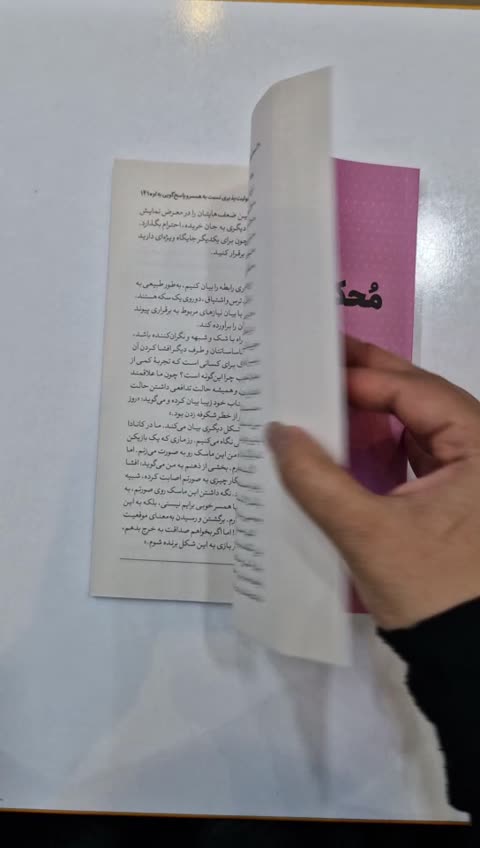 ولیت‌پذیری نسبت به همسر و پاسخ‌گویی به او ۱۴۱
ین ضعف‌هایتان را در معرض نمایش
دیگری به جان خریده، احترام بگذارد.
چون برای یکدیگر جایگاه ویژه‌ای دارید
برقرار کنید.
ری رابطه را بیان کنیم، به‌طور طبیعی به
ترس و اشتیاق، دو روی یک سکه هستند.
با بیان نیازهای مربوط به برقراری پیوند
آن را برآورده کند.
راه با شک و شبهه و نگران‌کننده باشد.
ساساتتان و طرف دیگر افشا کردن آن
ی برای کسانی است که تجربهٔ کمی از
چرا این‌گونه است؟ چون ما علاقمند
و همیشه حالت تدافعی داشتن حالت
تاب خود زیبا بیان کرده و می‌گوید: «روز
از خطر شکوفه زدن بود.»
شکل دیگری بیان می‌کند. ما در کانادا
نگاه می‌کنیم. رزماری که یک بازیکن
من این ماسک رو به صورت می‌زنم. اما
رم. بخشی از ذهنم به من می‌گوید: افشا
کار چیزی به صورتم اصابت کرده، شبیه
نگه داشتن این ماسک روی صورتم، به
ا همسر خوبی برایم نیستی، بلکه به این
رم. برگشتن و رسیدن به‌معنای موقعیت
اما اگر بخواهم صداقت به خرج بدهم،
ر بازی به این شکل برنده شوم.»
مُحک